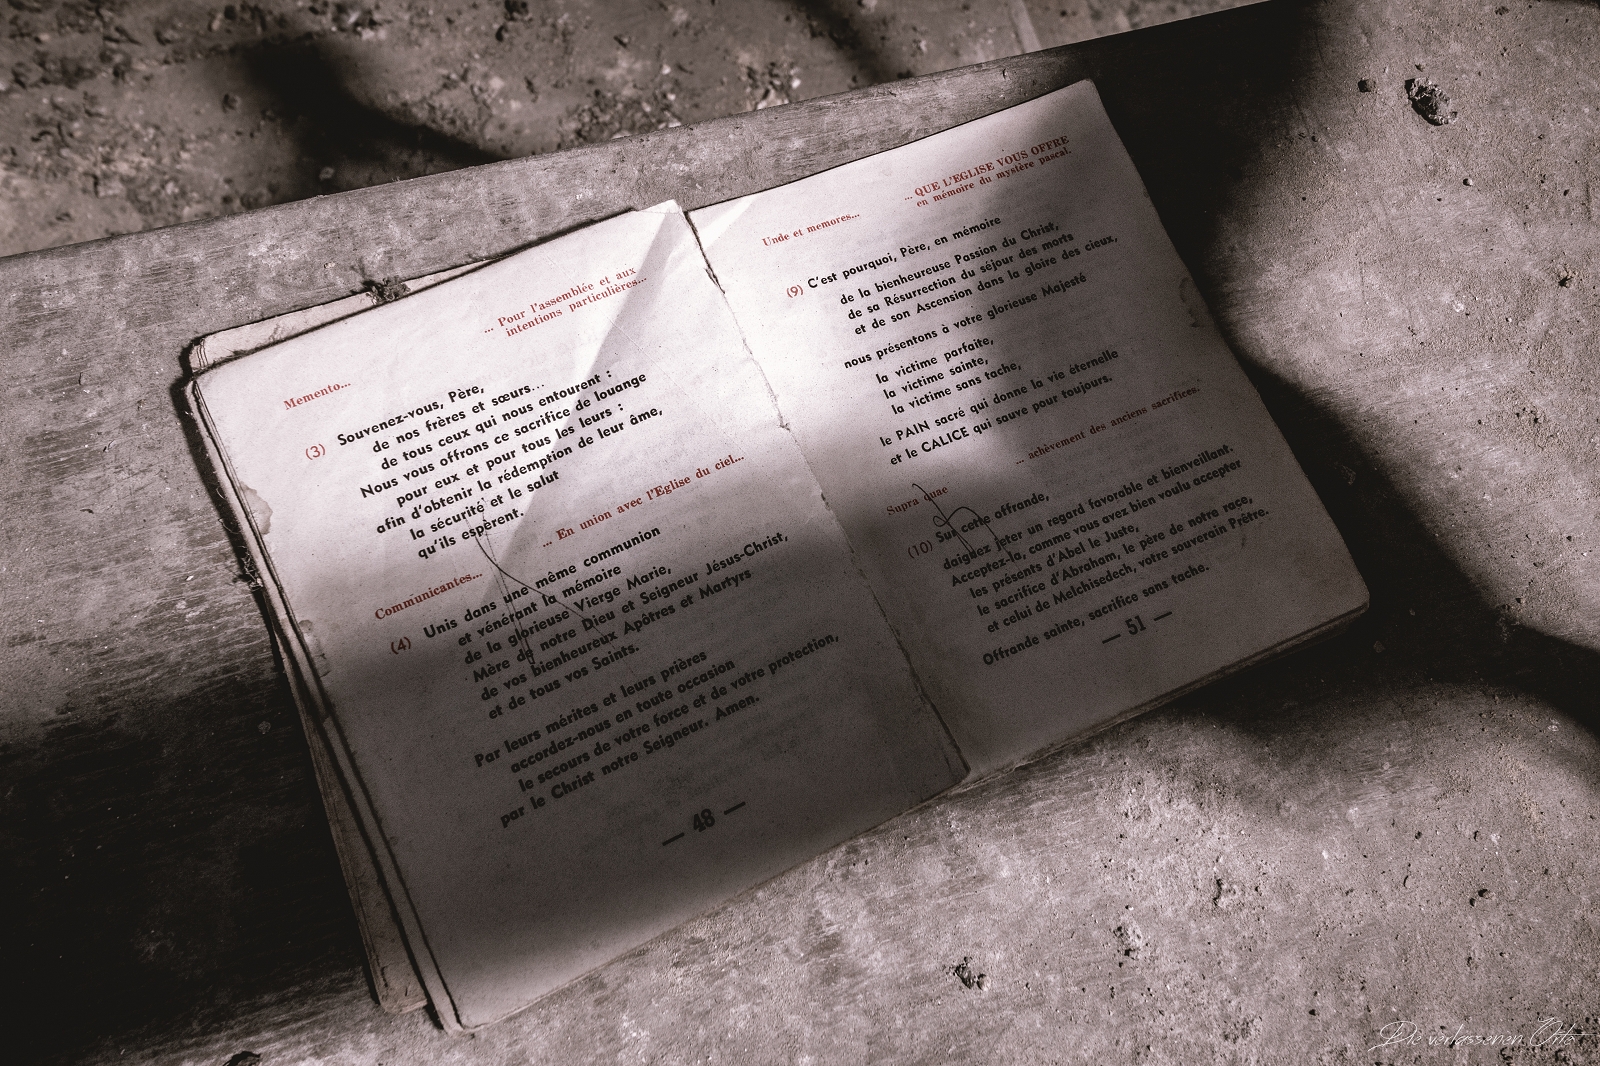 ... Pour l'assemblée et aux
intentions particulières...
Memento...
(3) Souvenez-vous, Père,
de nos frères et sœurs...
de tous ceux qui nous entourent :
Nous vous offrons ce sacrifice de louange
pour eux et pour tous les leurs :
afin d'obtenir la rédemption de leur âme,
la sécurité et le salut
qu'ils espèrent.
... En union avec l'Eglise du ciel...
Communicantes...
(4) Unis dans une même communion
et vénérant la mémoire
de la glorieuse Vierge Marie,
Mère de notre Dieu et Seigneur Jésus-Christ,
de vos bienheureux Apôtres et Martyrs
et de tous vos Saints.
Par leurs mérites et leurs prières
accordez-nous en toute occasion
le secours de votre force et de votre protection,
par le Christ notre Seigneur. Amen.
— 48 —
... QUE L'EGLISE VOUS OFFRE
en mémoire du mystère pascal.
Unde et memores...
(9) C'est pourquoi, Père, en mémoire
de la bienheureuse Passion du Christ,
de sa Résurrection du séjour des morts
et de son Ascension dans la gloire des cieux,
nous présentons à votre glorieuse Majesté
la victime parfaite,
la victime sainte,
la victime sans tache,
le PAIN sacré qui donne la vie éternelle
et le CALICE qui sauve pour toujours.
... achèvement des anciens sacrifices.
Supra quae
(10) Sur cette offrande,
daignez jeter un regard favorable et bienveillant.
Acceptez-la, comme vous avez bien voulu accepter
les présents d'Abel le Juste,
le sacrifice d'Abraham, le père de notre race,
et celui de Melchisedech, votre souverain Prêtre.
Offrande sainte, sacrifice sans tache.
— 51 —
Die verlassenen Orte